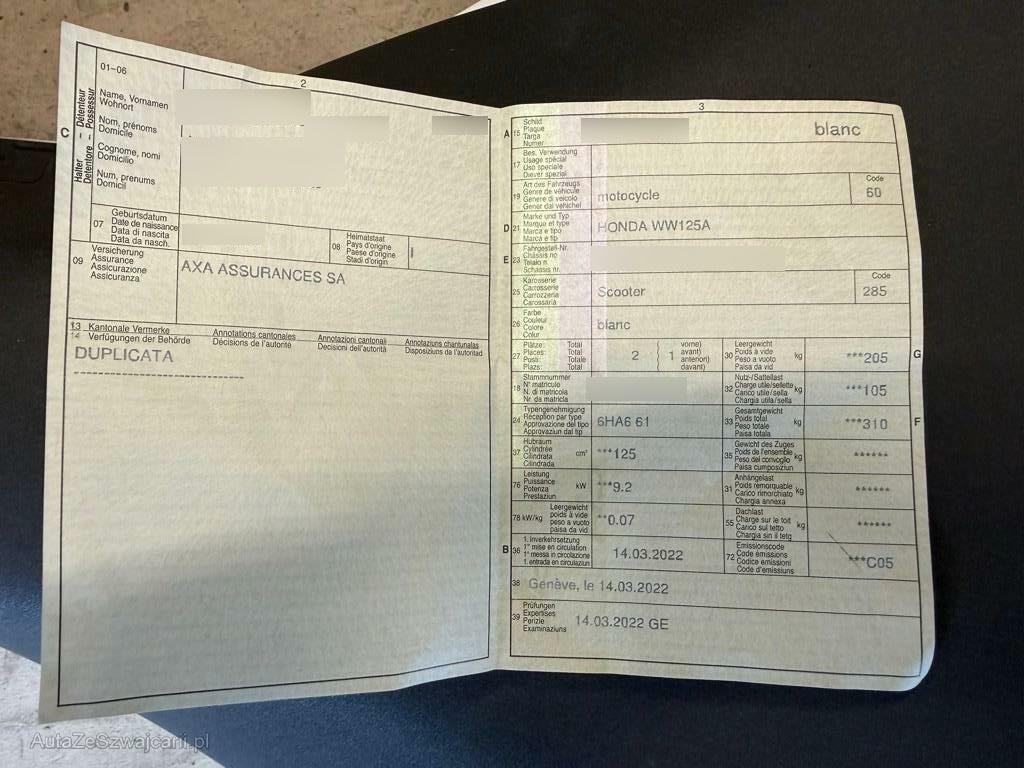 2
01–06
C
Halter – Détenteur
Detentore – Possessur
Name, Vornamen
Wohnort
Nom, prénoms
Domicile
Cognome, nomi
Domicilio
Num, prenums
Domicil
07
Geburtsdatum
Date de naissance
Data di nascita
Data da nasch.
08
Heimatstaat
Pays d'origine
Paese d'origine
Stadi d'origin
09
Versicherung
Assurance
Assicurazione
Assicuranza
AXA ASSURANCES SA
13 Kantonale Vermerke Annotations cantonales Annotazioni cantonali Annotaziuns chantunalas
14 Verfügungen der Behörde Décisions de l'autorité Decisioni dell'autorità Disposiziuns da l'autoritad
DUPLICATA
--------------------------
3
A 15
Schild
Plaque
Targa
Numer
blanc
17
Bes. Verwendung
Usage spécial
Uso speciale
Diever spezial
19
Art des Fahrzeugs
Genre de véhicule
Genere di veicolo
Gener dal vehichel
motocycle
Code
60
D 21
Marke und Typ
Marque et type
Marca e tipo
Marca e tip
HONDA WW125A
E 23
Fahrgestell-Nr.
Châssis no
Telaio n.
Schassis nr.
25
Karosserie
Carrosserie
Carrozzeria
Carossaria
Scooter
Code
285
26
Farbe
Couleur
Colore
Colur
blanc
27
Plätze: Total
Places: Total
Posti: Totale
Plazs: Total
2
1
vorne)
avant)
anteriori)
davant)
30
Leergewicht
Poids à vide
Peso a vuoto
Paisa da vid
kg
***205
G
18
Stammnummer
N° matricule
N. di matricola
Nr. da matricla
32
Nutz-/Sattellast
Charge utile/sellette
Carico utile/sella
Chargia utila/sella
kg
***105
24
Typengenehmigung
Réception par type
Approvazione del tipo
Approvaziun dal tip
6HA6 61
33
Gesamtgewicht
Poids total
Peso totale
Paisa totala
kg
***310
F
37
Hubraum
Cylindrée
Cilindrata
Cilindrada
cm³
***125
35
Gewicht des Zuges
Poids de l'ensemble
Peso del convoglio
Paisa cumposiziun
kg
******
76
Leistung
Puissance
Potenza
Prestaziun
kW
***9.2
31
Anhängelast
Poids remorquable
Carico rimorchiato
Chargia annexa
kg
******
78 kW/kg
Leergewicht
poids à vide
peso a vuoto
paisa da vid
**0.07
55
Dachlast
Charge sur le toit
Carico sul tetto
Chargia sin il tetg
kg
******
B 36
1. Inverkehrsetzung
1re mise en circulation
1a messa in circolazione
1. entrada en circulaziun
14.03.2022
72
Emissionscode
Code émissions
Codice emissioni
Code d'emissiuns
***C05
38
Genève, le 14.03.2022
39
Prüfungen
Expertises
Perizie
Examinaziuns
14.03.2022 GE
AutaZeSzwajcarii.pl